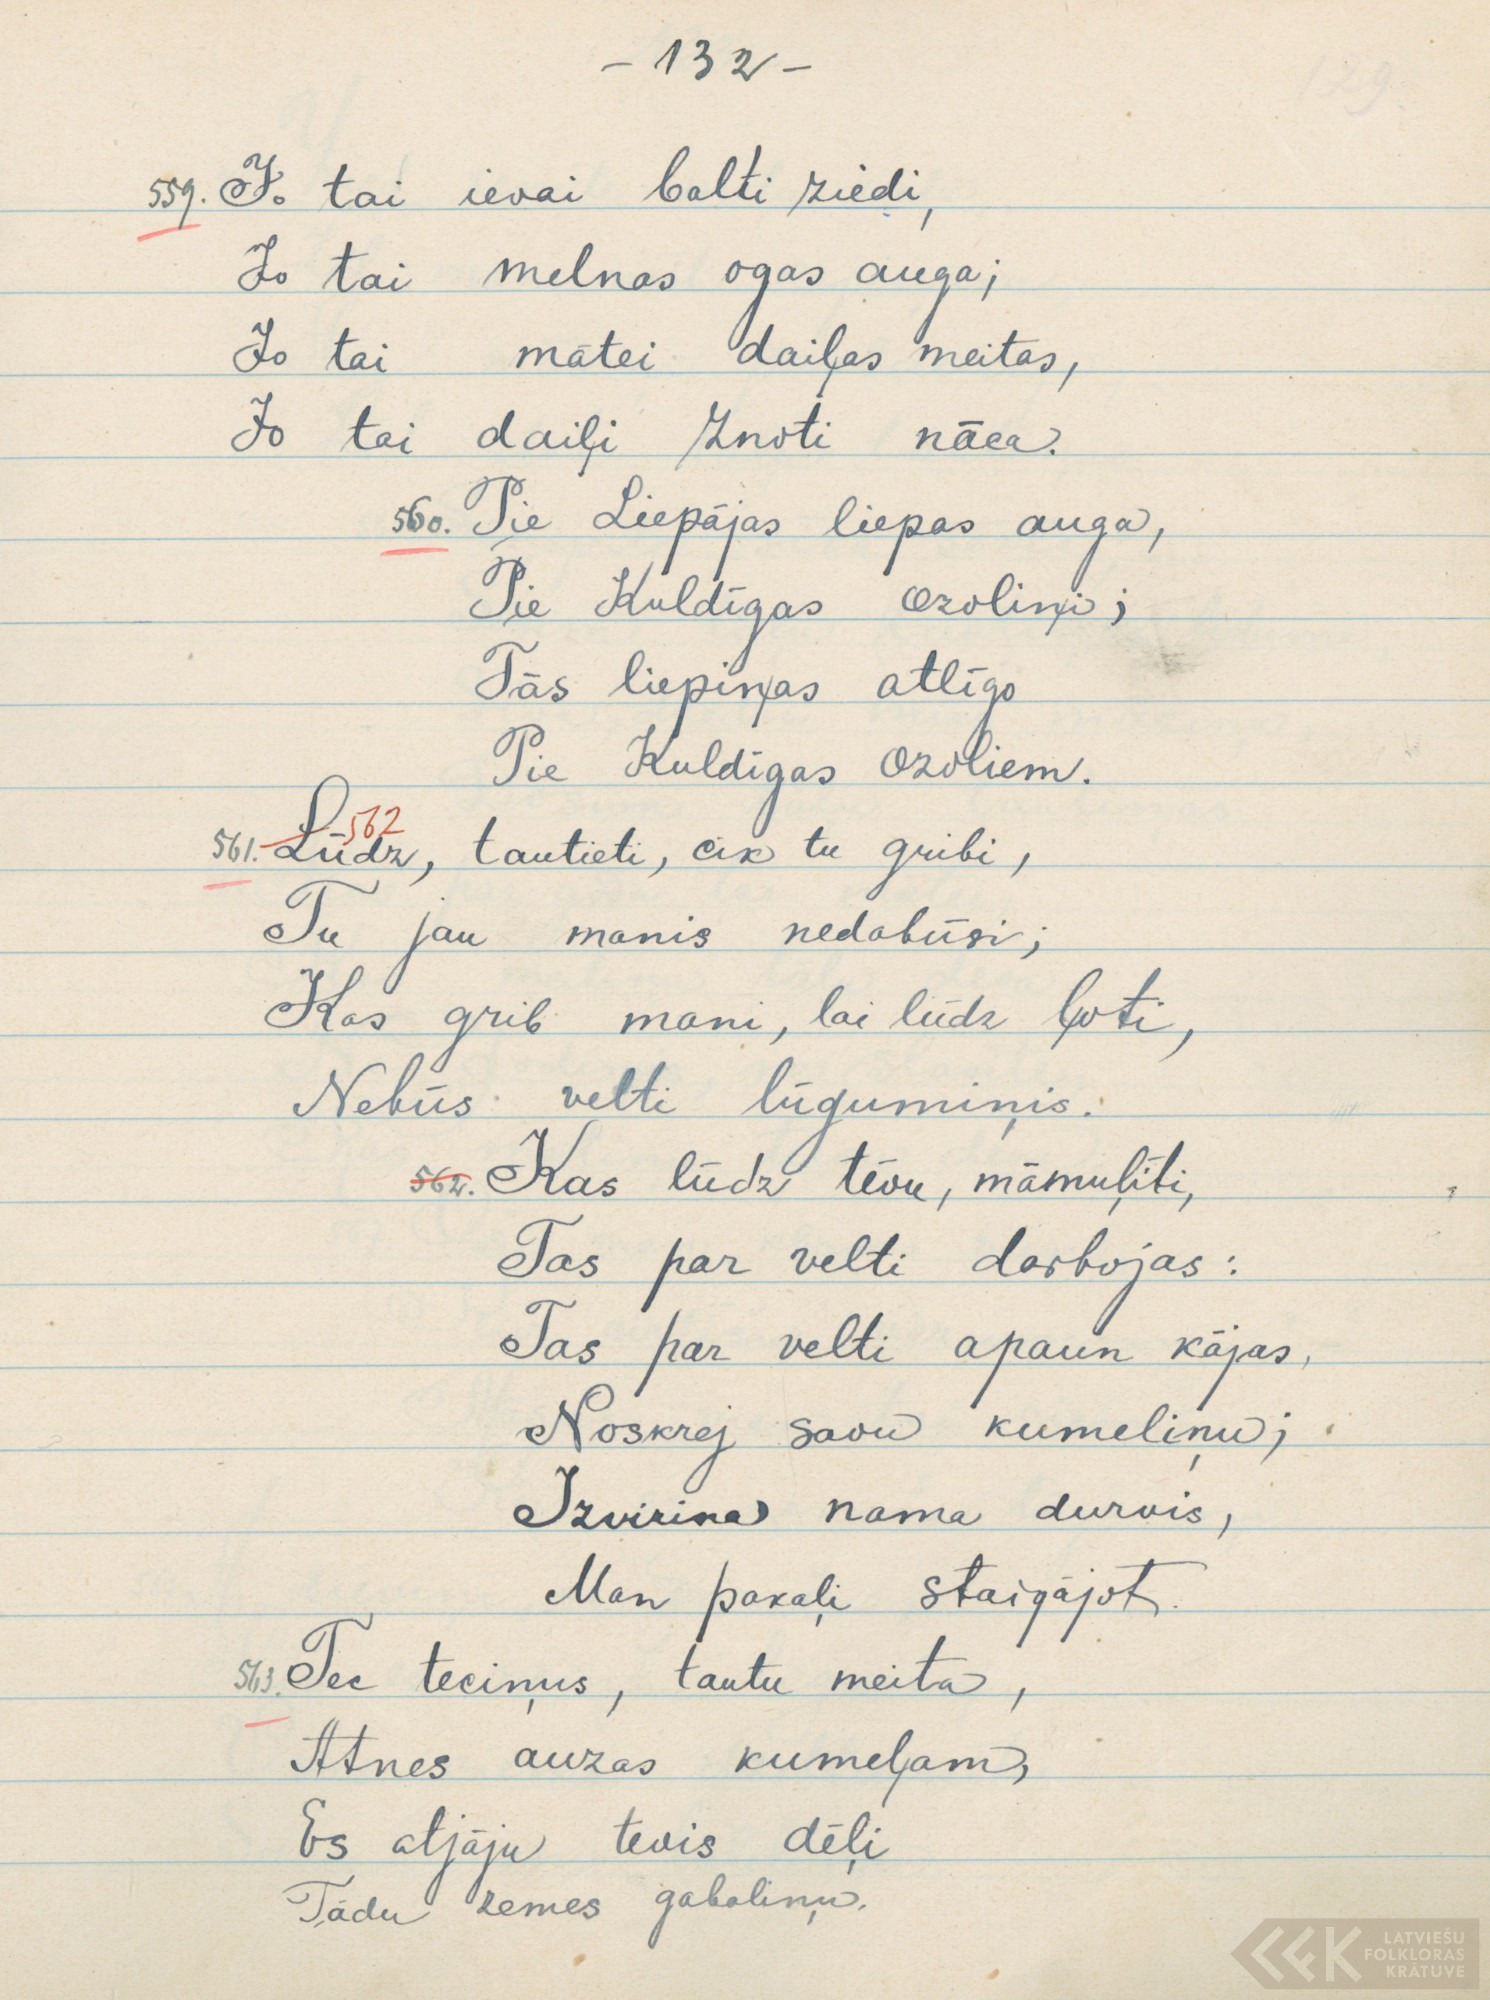 - 132 -
129.
559. Jo tai ievai balti ziedi,
Jo tai melnas ogas auga;
Jo tai mātei daiļas meitas,
Jo tai daiļi znoti nāca.
560. Pie Liepājas liepas auga,
Pie Kuldīgas ozoliņi;
Tās liepiņas atlīgo
Pie Kuldīgas ozoliem.
562
561. Lūdz, tautieti, cik tu gribi,
Tu jau manis nedabūsi;
Kas grib mani, lai lūdz ļoti,
Nebūs velti lūgumiņis.
562. Kas lūdz tēvu, māmuļīti,
Tas par velti darbojas:
Tas par velti apaun kājas,
Noskrej savu kumeliņu;
Izvirina nama durvis,
Man pakaļi staigājot.
563. Tec teciņus, tautu meita,
Atnes auzas kumeļam,
Es atjāju tevis dēļi
Tādu zemes gabaliņu.
LATVIEŠU
FOLKLORAS
KRĀTUVE